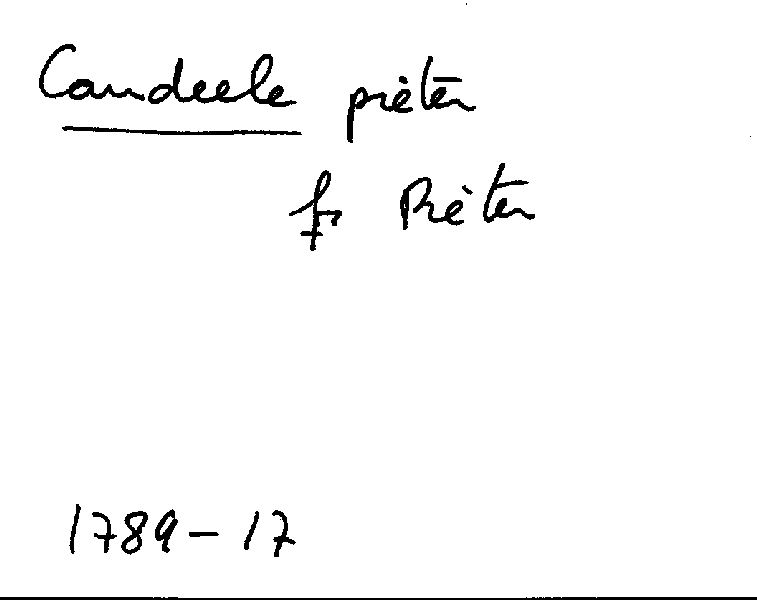 Caudeele piéter
fs Piéter
1789-17